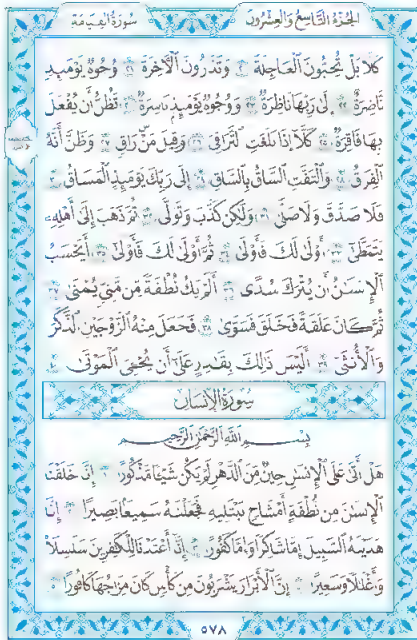 سُورَةُ القِيَامَةِ الجُزْءُ التَّاسِعُ وَالعِشْرُونَ
كَلَّا بَلْ تُحِبُّونَ ٱلْعَاجِلَةَ ٢٠ وَتَذَرُونَ ٱلْآخِرَةَ ٢١ وُجُوهٌ يَوْمَئِذٍ
نَّاضِرَةٌ ٢٢ إِلَىٰ رَبِّهَا نَاظِرَةٌ ٢٣ وَوُجُوهٌ يَوْمَئِذٍۭ بَاسِرَةٌ ٢٤ تَظُنُّ أَن يُفْعَلَ
بِهَا فَاقِرَةٌ ٢٥ كَلَّآ إِذَا بَلَغَتِ ٱلتَّرَاقِىَ ٢٦ وَقِيلَ مَنْ رَاقٍ ٢٧ وَظَنَّ أَنَّهُ
ٱلْفِرَاقُ ٢٨ وَٱلْتَفَّتِ ٱلسَّاقُ بِٱلسَّاقِ ٢٩ إِلَىٰ رَبِّكَ يَوْمَئِذٍ ٱلْمَسَاقُ ٣٠
فَلَا صَدَّقَ وَلَا صَلَّىٰ ٣١ وَلَٰكِن كَذَّبَ وَتَوَلَّىٰ ٣٢ ثُمَّ ذَهَبَ إِلَىٰٓ أَهْلِهِۦ
يَتَمَطَّىٰٓ ٣٣ أَوْلَىٰ لَكَ فَأَوْلَىٰ ٣٤ ثُمَّ أَوْلَىٰ لَكَ فَأَوْلَىٰٓ ٣٥ أَيَحْسَبُ
ٱلْإِنسَٰنُ أَن يُتْرَكَ سُدًى ٣٦ أَلَمْ يَكُ نُطْفَةً مِّن مَّنِىٍّ يُمْنَىٰ ٣٧
ثُمَّ كَانَ عَلَقَةً فَخَلَقَ فَسَوَّىٰ ٣٨ فَجَعَلَ مِنْهُ ٱلزَّوْجَيْنِ ٱلذَّكَرَ
وَٱلْأُنثَىٰٓ ٣٩ أَلَيْسَ ذَٰلِكَ بِقَٰدِرٍ عَلَىٰٓ أَن يُحْـِۧىَ ٱلْمَوْتَىٰ ٤٠
سُورَةُ الإِنسَان
بِسْمِ ٱللَّهِ ٱلرَّحْمَٰنِ ٱلرَّحِيمِ
هَلْ أَتَىٰ عَلَى ٱلْإِنسَٰنِ حِينٌ مِّنَ ٱلدَّهْرِ لَمْ يَكُن شَيْـًٔا مَّذْكُورًا ١ إِنَّا خَلَقْنَا
ٱلْإِنسَٰنَ مِن نُّطْفَةٍ أَمْشَاجٍ نَّبْتَلِيهِ فَجَعَلْنَٰهُ سَمِيعًۢا بَصِيرًا ٢ إِنَّا
هَدَيْنَٰهُ ٱلسَّبِيلَ إِمَّا شَاكِرًا وَإِمَّا كَفُورًا ٣ إِنَّآ أَعْتَدْنَا لِلْكَٰفِرِينَ سَلَٰسِلَا۟
وَأَغْلَٰلًا وَسَعِيرًا ٤ إِنَّ ٱلْأَبْرَارَ يَشْرَبُونَ مِن كَأْسٍ كَانَ مِزَاجُهَا كَافُورًا ٥
٥٧٨